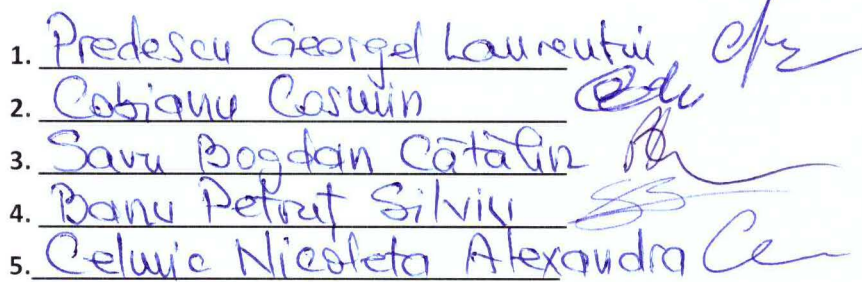 1. Predescu Georgel Laurentiu
2. Cobianu Cosmin
3. Savu Bogdan Cătălin
4. Banu Petruț Silviu
5. Celmic Nicoleta Alexandra